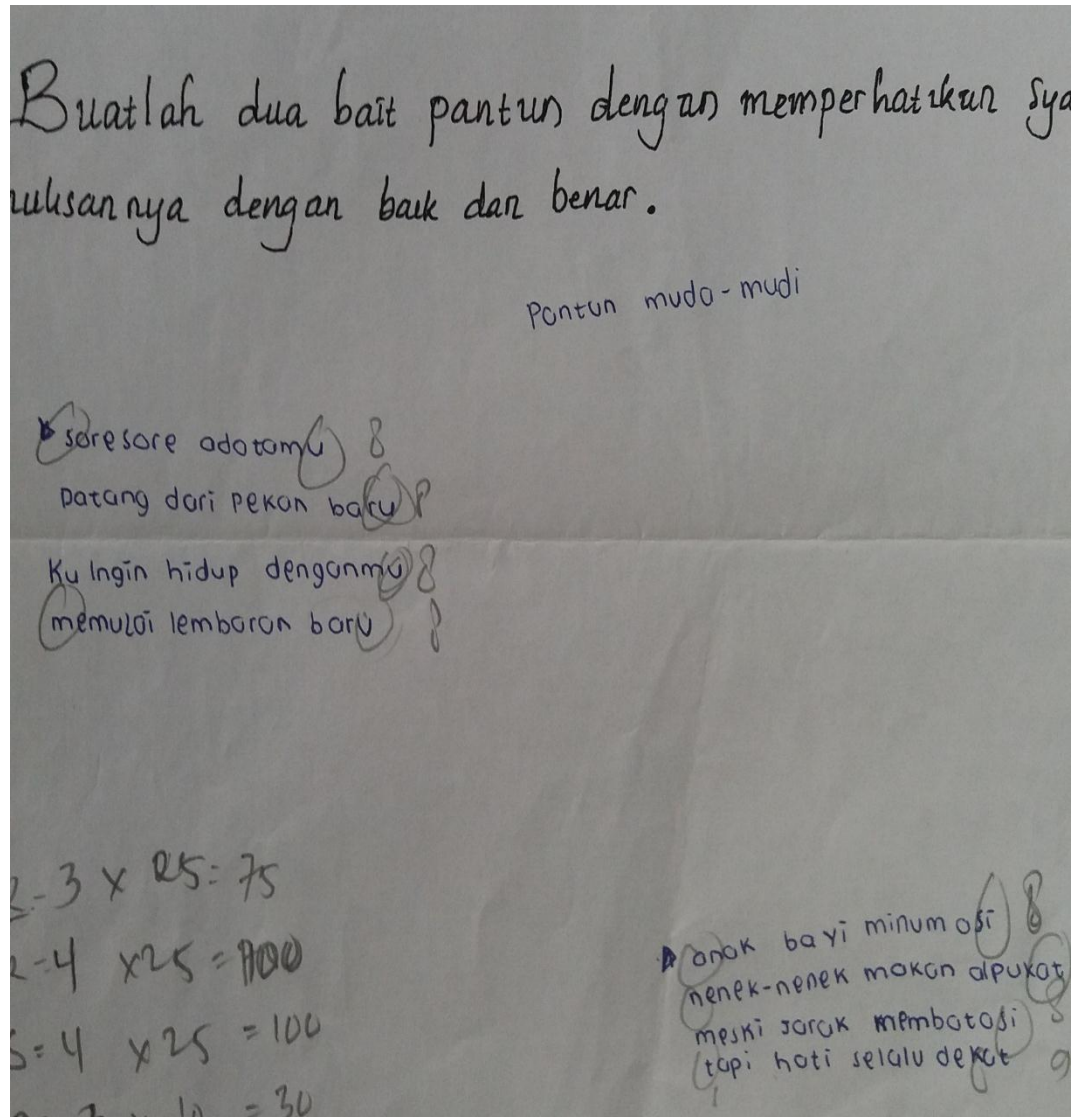 Buatlah dua bait pantun dengan memperhatikan sya
nulisannya dengan baik dan benar.
Pantun muda-mudi
sore sore ada tamu 8
Datang dari pekan baru 8
Ku Ingin hidup denganmu 8
memulai lembaran baru 8
2-3 x 25 = 75
2-4 x 25 = 100
5 = 4 x 25 = 100
= 30
anak bayi minum asi 8
nenek-nenek makan alpukat
meski jarak membatasi 8
tapi hati selalu dekat 9